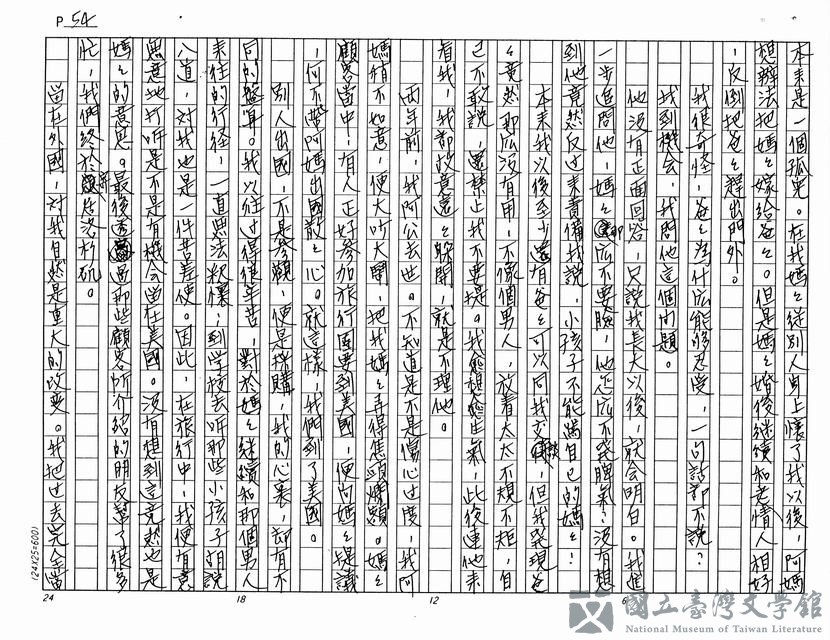 P 54
本來是一個孤兒。在我媽々從別人身上懷了我以後，阿媽
想辦法把媽々嫁給爸々。但是媽々婚後繼續和老情人相好
，反倒把爸々趕出門外。
我很奇怪，爸々為什么能夠忍受，一句話都不說？
找到機会，我問他這個問題。
他沒有正面回答，只說我長大以後，就会明白。我進
一步追問他，媽々那么不要臉，他怎么不發脾氣？沒有想
到他竟然反过來責備我說，小孩子不能講自己的媽々！
本來我以後至少還有爸々可以同我交談，但我發現爸
々竟然那么沒有用，不像個男人，放着太太不規不矩，自
己不敢說，還禁止我不要提。我愈想愈生氣，此後連他來
看我，我都故意遠々躲開，就是不理他。
兩年前，我阿公去世。不知道是不是傷心过度，我阿
媽稍不如意，便大吵大鬧，把我媽々弄得焦頭爛額。媽々
顧客當中，有人正好参加旅行団要到美國，便向媽々提議
，何不帶阿媽出國散々心。就這樣，我們到了美國。
別人出國，不是参觀，便是採購，我的心裏，却有不
同的盤算。我以往过得很辛苦，對於媽々継續和那個男人
來往的行径，一直無法釈懷，到学校去听那些小孩子胡說
八道，对我也是一件苦差使。因此，在旅行中，我便有意
無意地打听是不是有機会留在美國。沒有想到這竟然也是
媽々的意思。最後透過那些顧客所介紹的朋友幫了很多
忙，我們終於寄居洛杉矶。
留在外國，对我自然是重大的改変。我把过去完全當
24
18
12
6
(24X25=600)
國立臺灣文學館
National Museum of Taiwan Literature